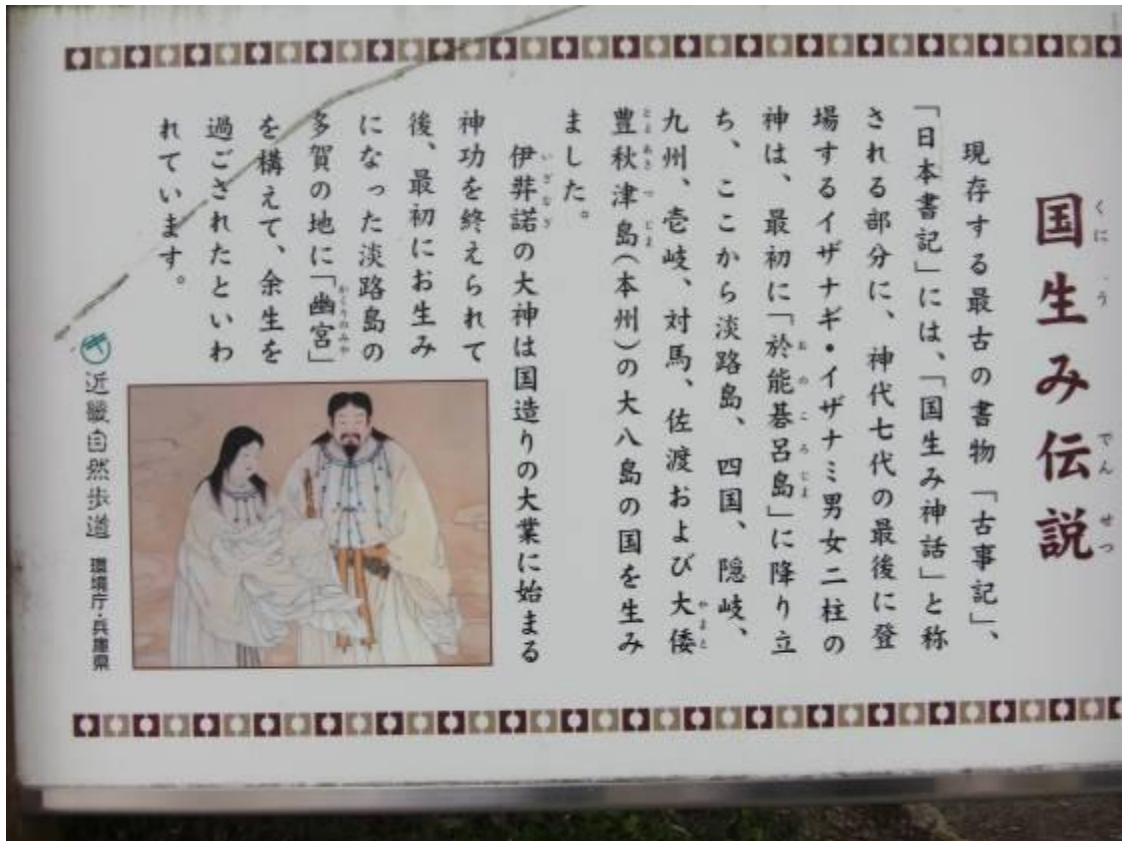 国生み伝説
現存する最古の書物「古事記」、
「日本書記」には、「国生み神話」と称
される部分に、神代七代の最後に登
場するイザナギ・イザナミ男女二柱の
神は、最初に「於能碁呂島」に降り立
ち、ここから淡路島、四国、隠岐、
九州、壱岐、対馬、佐渡および大倭
豊秋津島(本州)の大八島の国を生み
ました。
伊弉諾の大神は国造りの大業に始まる
神功を終えられて
後、最初にお生み
になった淡路島の
多賀の地に「幽宮」
を構えて、余生を
過ごされたといわ
れています。
近畿自然歩道 環境庁・兵庫県